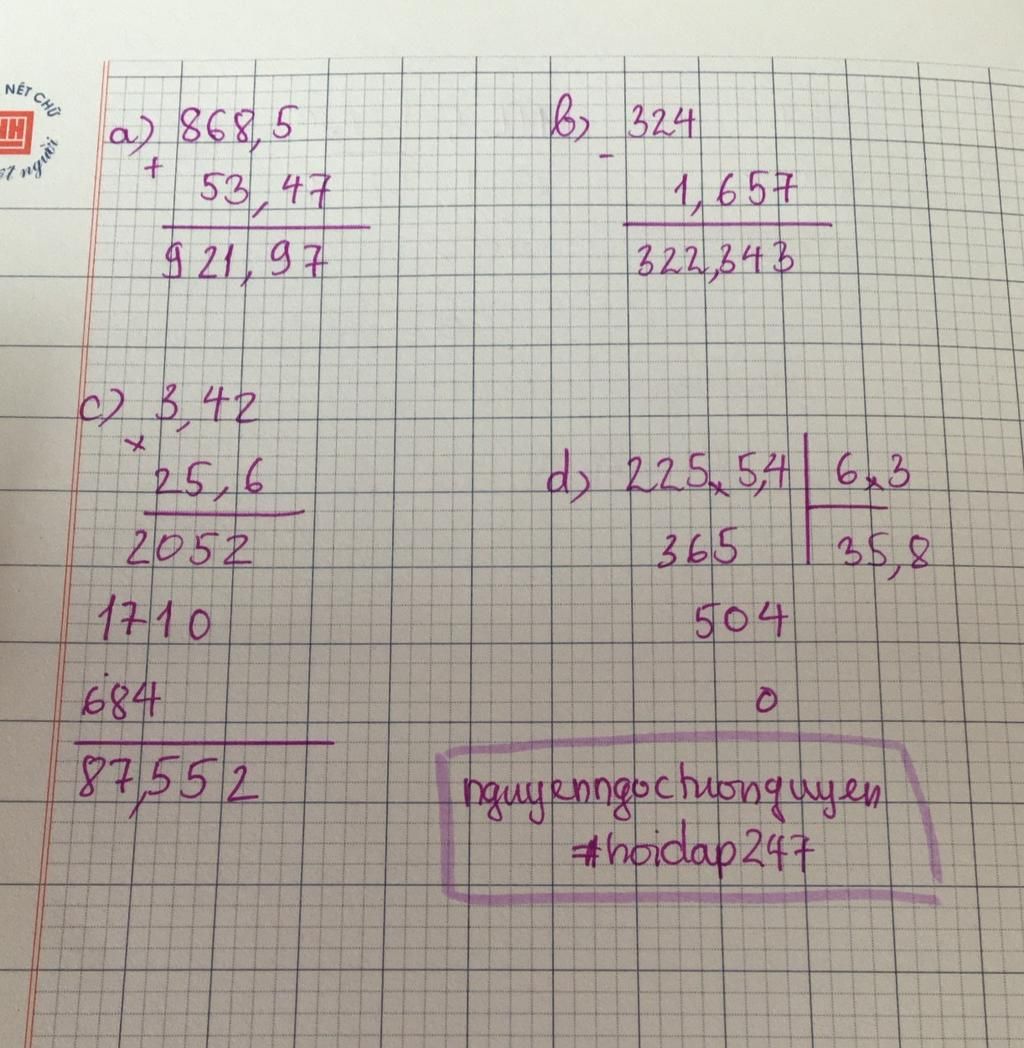 NÉT CHỮ
người
a) 868,5
+
53,47
921,97
b) 324
-
1,657
322,343
c) 3,42
×
25,6
2052
1710
684
87,552
d) 225×5,4 | 6×3
365 | 35,8
504
0
#hoidap247